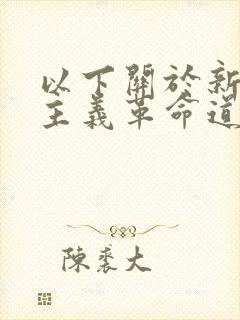 以下關於新
主義革命道
陳裘大